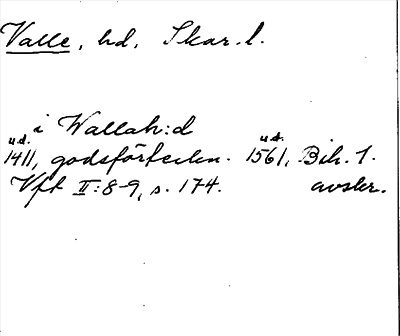 Valle, hd, Skar. l.
i Wallah:d
u.d. u.d.
1411, godsförteckn. 1561, Bih. 1.
Vft II:8-9, s. 174. avskr.